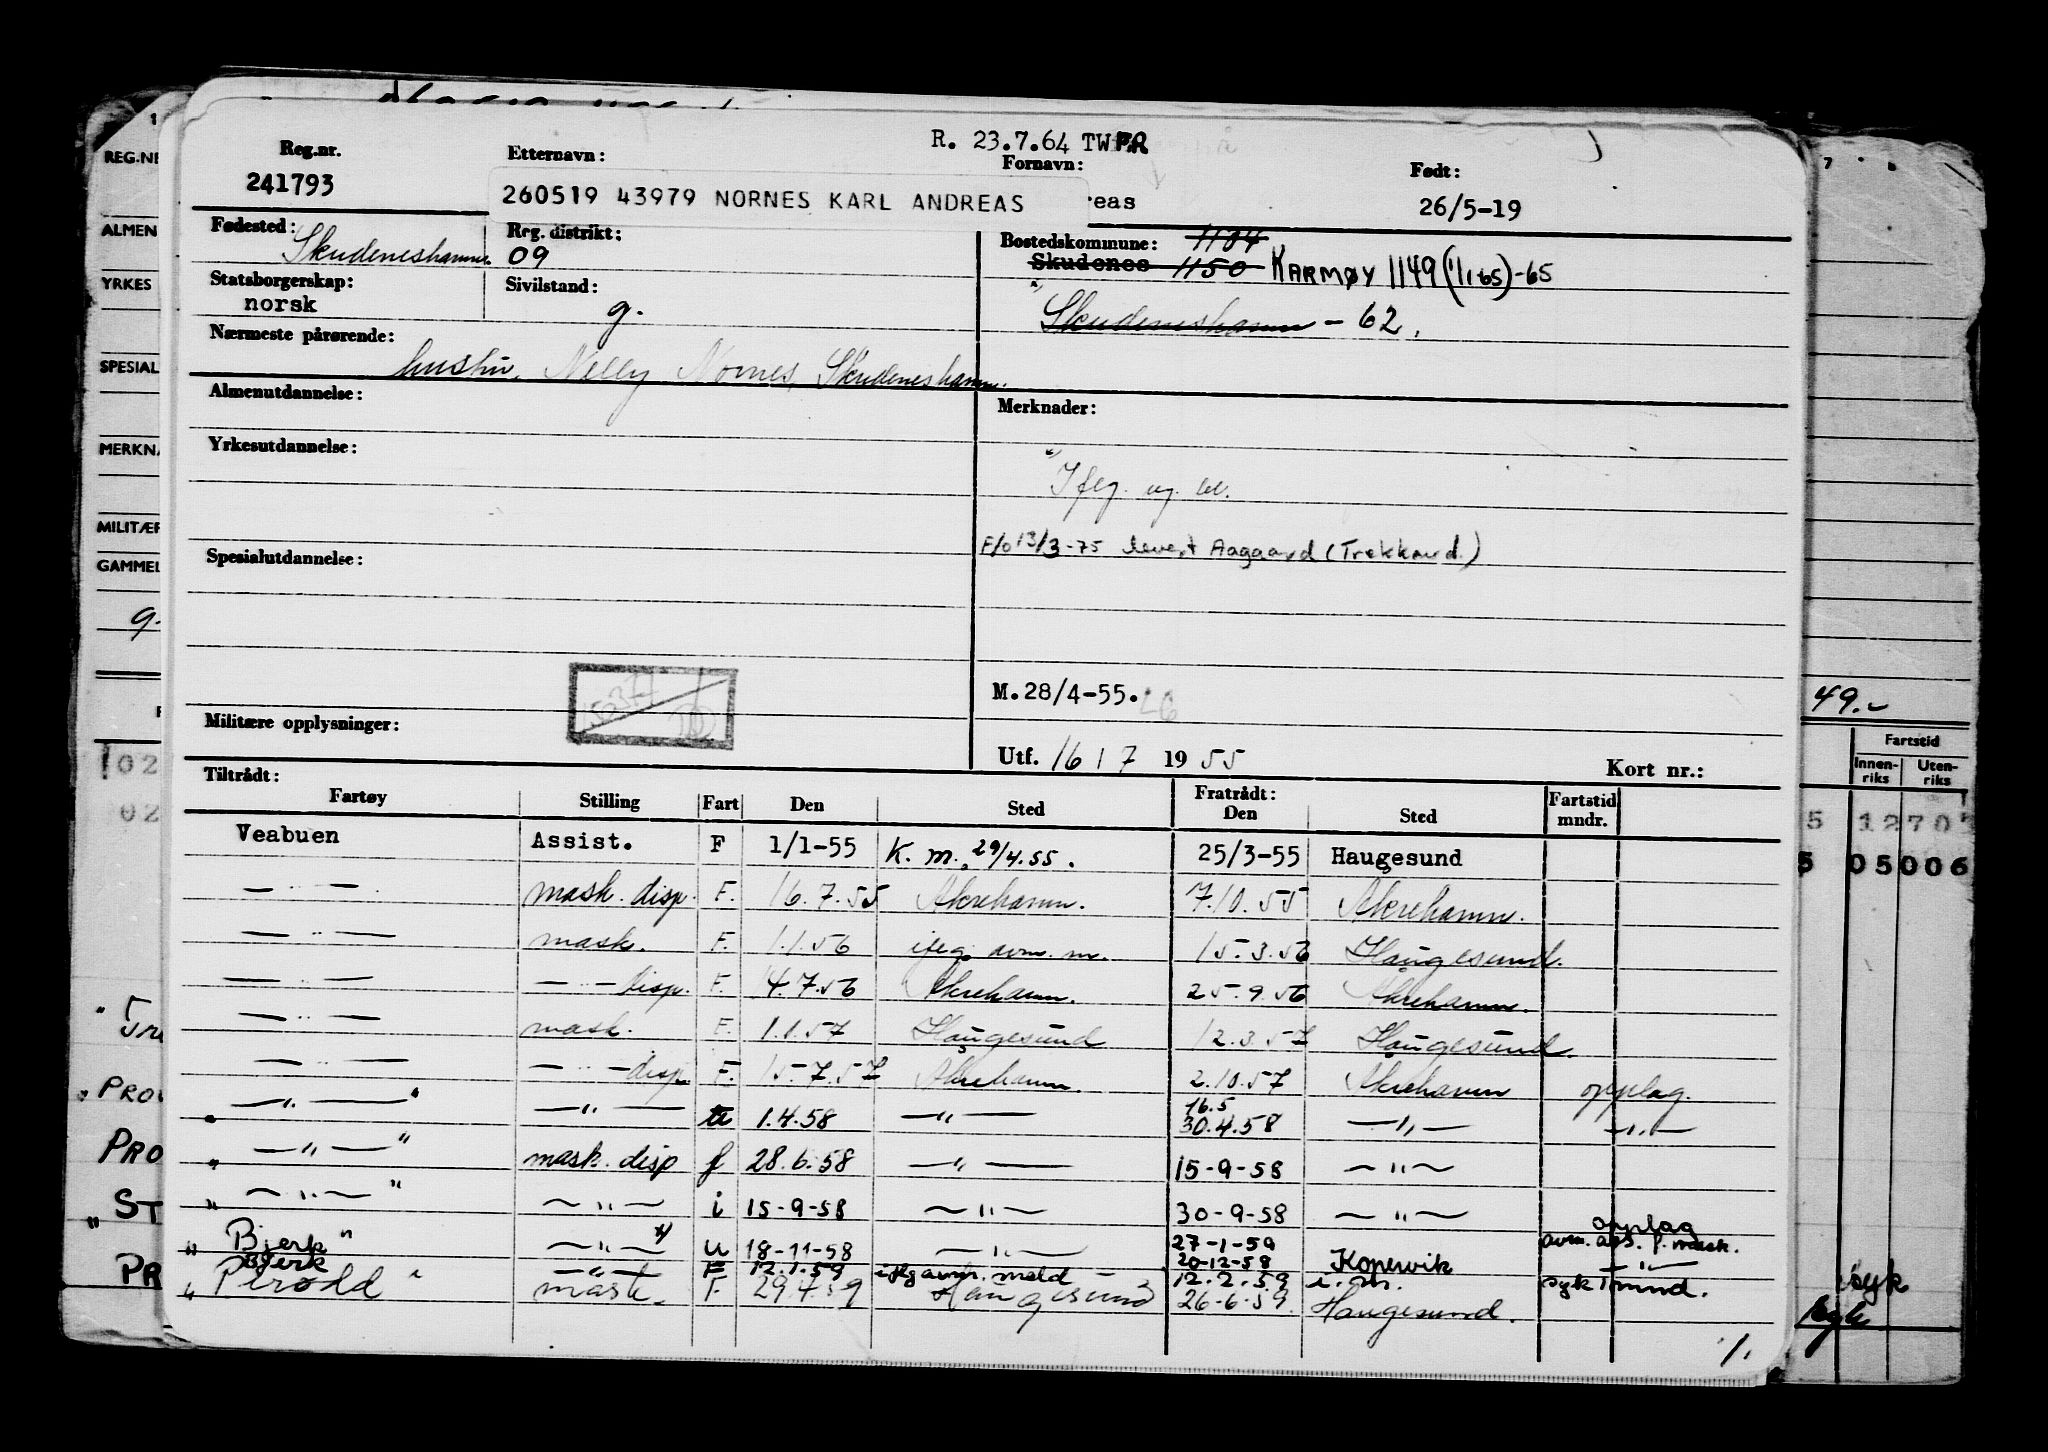 R. 23.7.64 TW
Reg.nr. Etternavn: Fornavn: Født:
241793 260519 43979 NORNES KARL ANDREAS reas 26/5-19
Fødested: Skudeneshamn. Reg. distrikt: 09 Bostedskommune: 1104
Skudenes 1150 KARMØY 1149 (1/1 65)-65
Statsborgerskap: norsk Sivilstand: g. Skudeneshamn - 62.
Nærmeste pårørende: hustru, Nelly Nornes, Skudeneshamn.
Almenutdannelse: Merknader:
Yrkesutdannelse:
Ifeg. og. bl.
F/o 13/3-75 Aaggard (Trekkavd.)
Spesialutdannelse:
M.28/4-55.
Militære opplysninger:
Utf. 16 / 7 1955 Kort nr.:
Tiltrådt: Fratrådt:
Fartøy Stilling Fart Den Sted Den Sted Fartstid mndr.
Veabuen Assist. F 1/1-55 K. m. 29/4.55. 25/3-55 Haugesund
— " — mask. disp. F. 16.7.55 Akrehamn. 7.10.55 Akrehamn.
— " — mask. F. 1.1.56 ifeg. avm. m. 15.3.56 Haugesund.
— — — " — disp. F. 4.7.56 Akrehamn. 25.9.56 Akrehamn.
— " — mask. F. 1.1.57 Haugesund 12.3.57 Haugesund.
— " — — " — disp. F. 15.7.57 Akrehamn. 2.10.57 Akrehamn opplag.
" — " — " — " — 1.4.58 — " — 16.5 30.4.58 — " — — " —
" — " — " mask. disp f 28.6.58 — " — 15-9-58 — " —
" — " — " — " — i 15-9-58 — " — 30-9-58 — " — opplag
" Bjerk " — " — u 18-11-58 — " — 27-1-59 20-12-58 Kopervik avm. f. mask.
Bjerk — " — F 12.1.59 ifeg avm. meld 12.2.59 i. m. syk 1 mnd.
" Perodd " mask. F. 29.4.59 Haugesund 26.6.59. Haugesund.
1.
REG.NR
ALMEN
YRKES
SPESIAL
MERKNA
MILITÆR
GAMMEL
g.
02
02
PROV
PRO
ST
PR
7 8
49.-
Fartstid
Innenriks Utenriks
5 1270
5 05006
syk